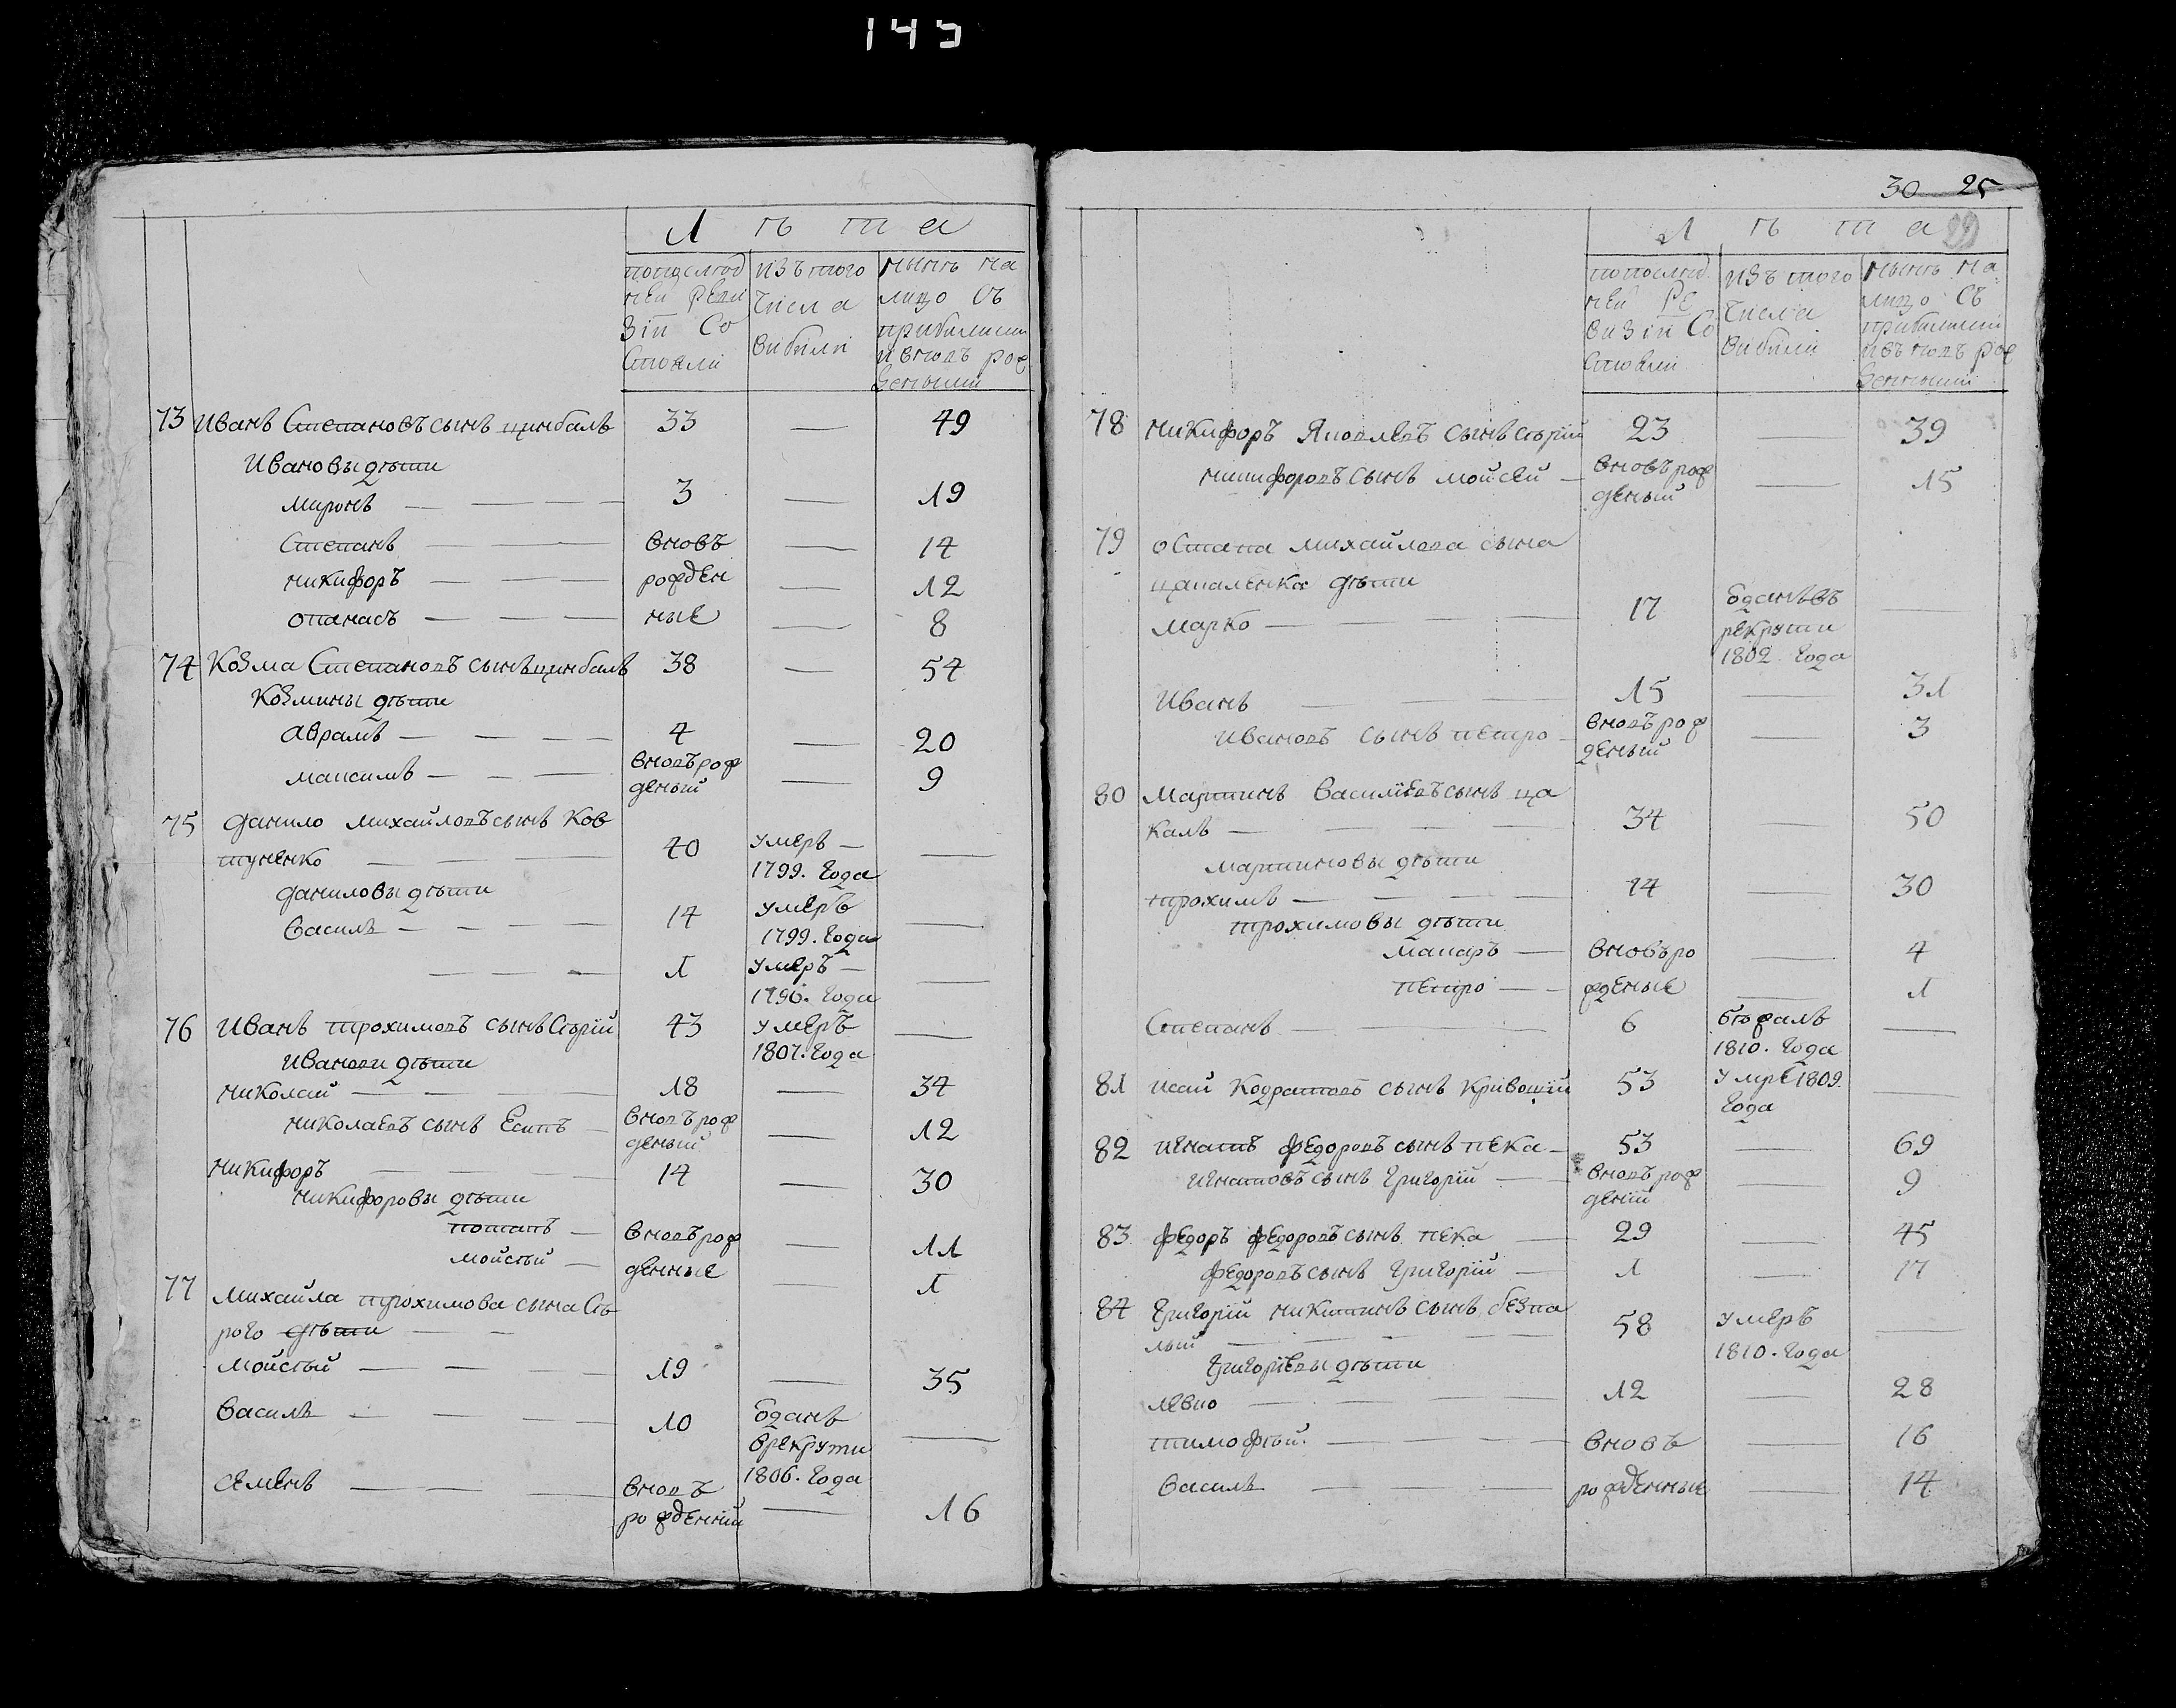 145
Л ѣ т а
попослѣд из того нынѣ на
ней Реви числа лицо съ
зіи Со вибили прибилими
стояли и вновь рож
денными
73 Иванъ Степановъ сынъ цимбалъ 33 — 49
Ивановы дѣти
Миронъ — 3 — 19
Степанъ — вновъ — 14
Никифоръ — рожден — 12
Опанасъ — ные — 8
74 Козма Степановъ сынъ цимбалъ 38 — 54
Козмины дѣти
Аврамъ — 4 — 20
Максимъ — вновъ рож деный — 9
75 Данило Михайловъ сынъ Ков
туненко — 40 умеръ — 1799. Года —
Даниловы дѣти
Василь — 14 умеръ 1799. Года —
— 1 умеръ — 1796. Года —
76 Иванъ Трохимовъ сынъ Сѣрій 43 умеръ 1807. Года —
Иванови дѣти
Николай — 18 — 34
Николаевъ сынъ Есипъ — вновъ рож деный — 12
Никифоръ — 14 — 30
Никифоровы дѣти
Потапъ — вновъ рож — 11
Мойсѣй — денные — 1
77 Михайла Трохимова сына Сѣ
рого дѣти —
Мойсѣй — 19 — 35
Василь — 10 бданъ врекрути 1806. Года —
Семенъ — вновъ рожденній — 16
30 25
29
Л ѣ т а
попослѣд изъ того нынѣ на
ней Ре числа лицо съ
визіи Со вибили прибилими
стояли и въновъ рож
денными
78 Никифоръ Яковлевъ сынъ Сѣрій 23 — 39
Никифоровъ сынъ Мойсей — вновъ рож деный — 15
79 Остапа Михайлова сына
цапаленка дѣти
Марко — 17 бданъ въ рекрути 1802 Года —
Иванъ — 15 — 31
Ивановъ сынъ Петро — вновъ рож деный — 3
80 Мартинъ Василіевъ сынъ ца
калъ — 34 — 50
Мартиновы дѣти
Трохимъ — 14 — 30
Трохимовы дѣти
Макаръ — вновъ ро — 4
Петро — жденые — 1
Степанъ — 6 бѣжалъ 1810. Года —
81 Исай Кодратовъ сынъ Кривошій 53 Умре 1809. Года —
82 Игнатъ Федоровъ сынъ Пека — 53 — 69
Игнатовъ сынъ Григорій — вновъ рож деній — 9
83 Федоръ Федоровъ сынъ Пека — 29 — 45
Федоровъ сынъ Григорій — 1 — 17
84 Григорій Никитинъ сынъ безпа
лый — 58 умеръ 1810. Года —
Григоріевы дѣти
Левко — 12 — 28
Тимофѣй — вновъ — 16
Василь — рожденные — 14